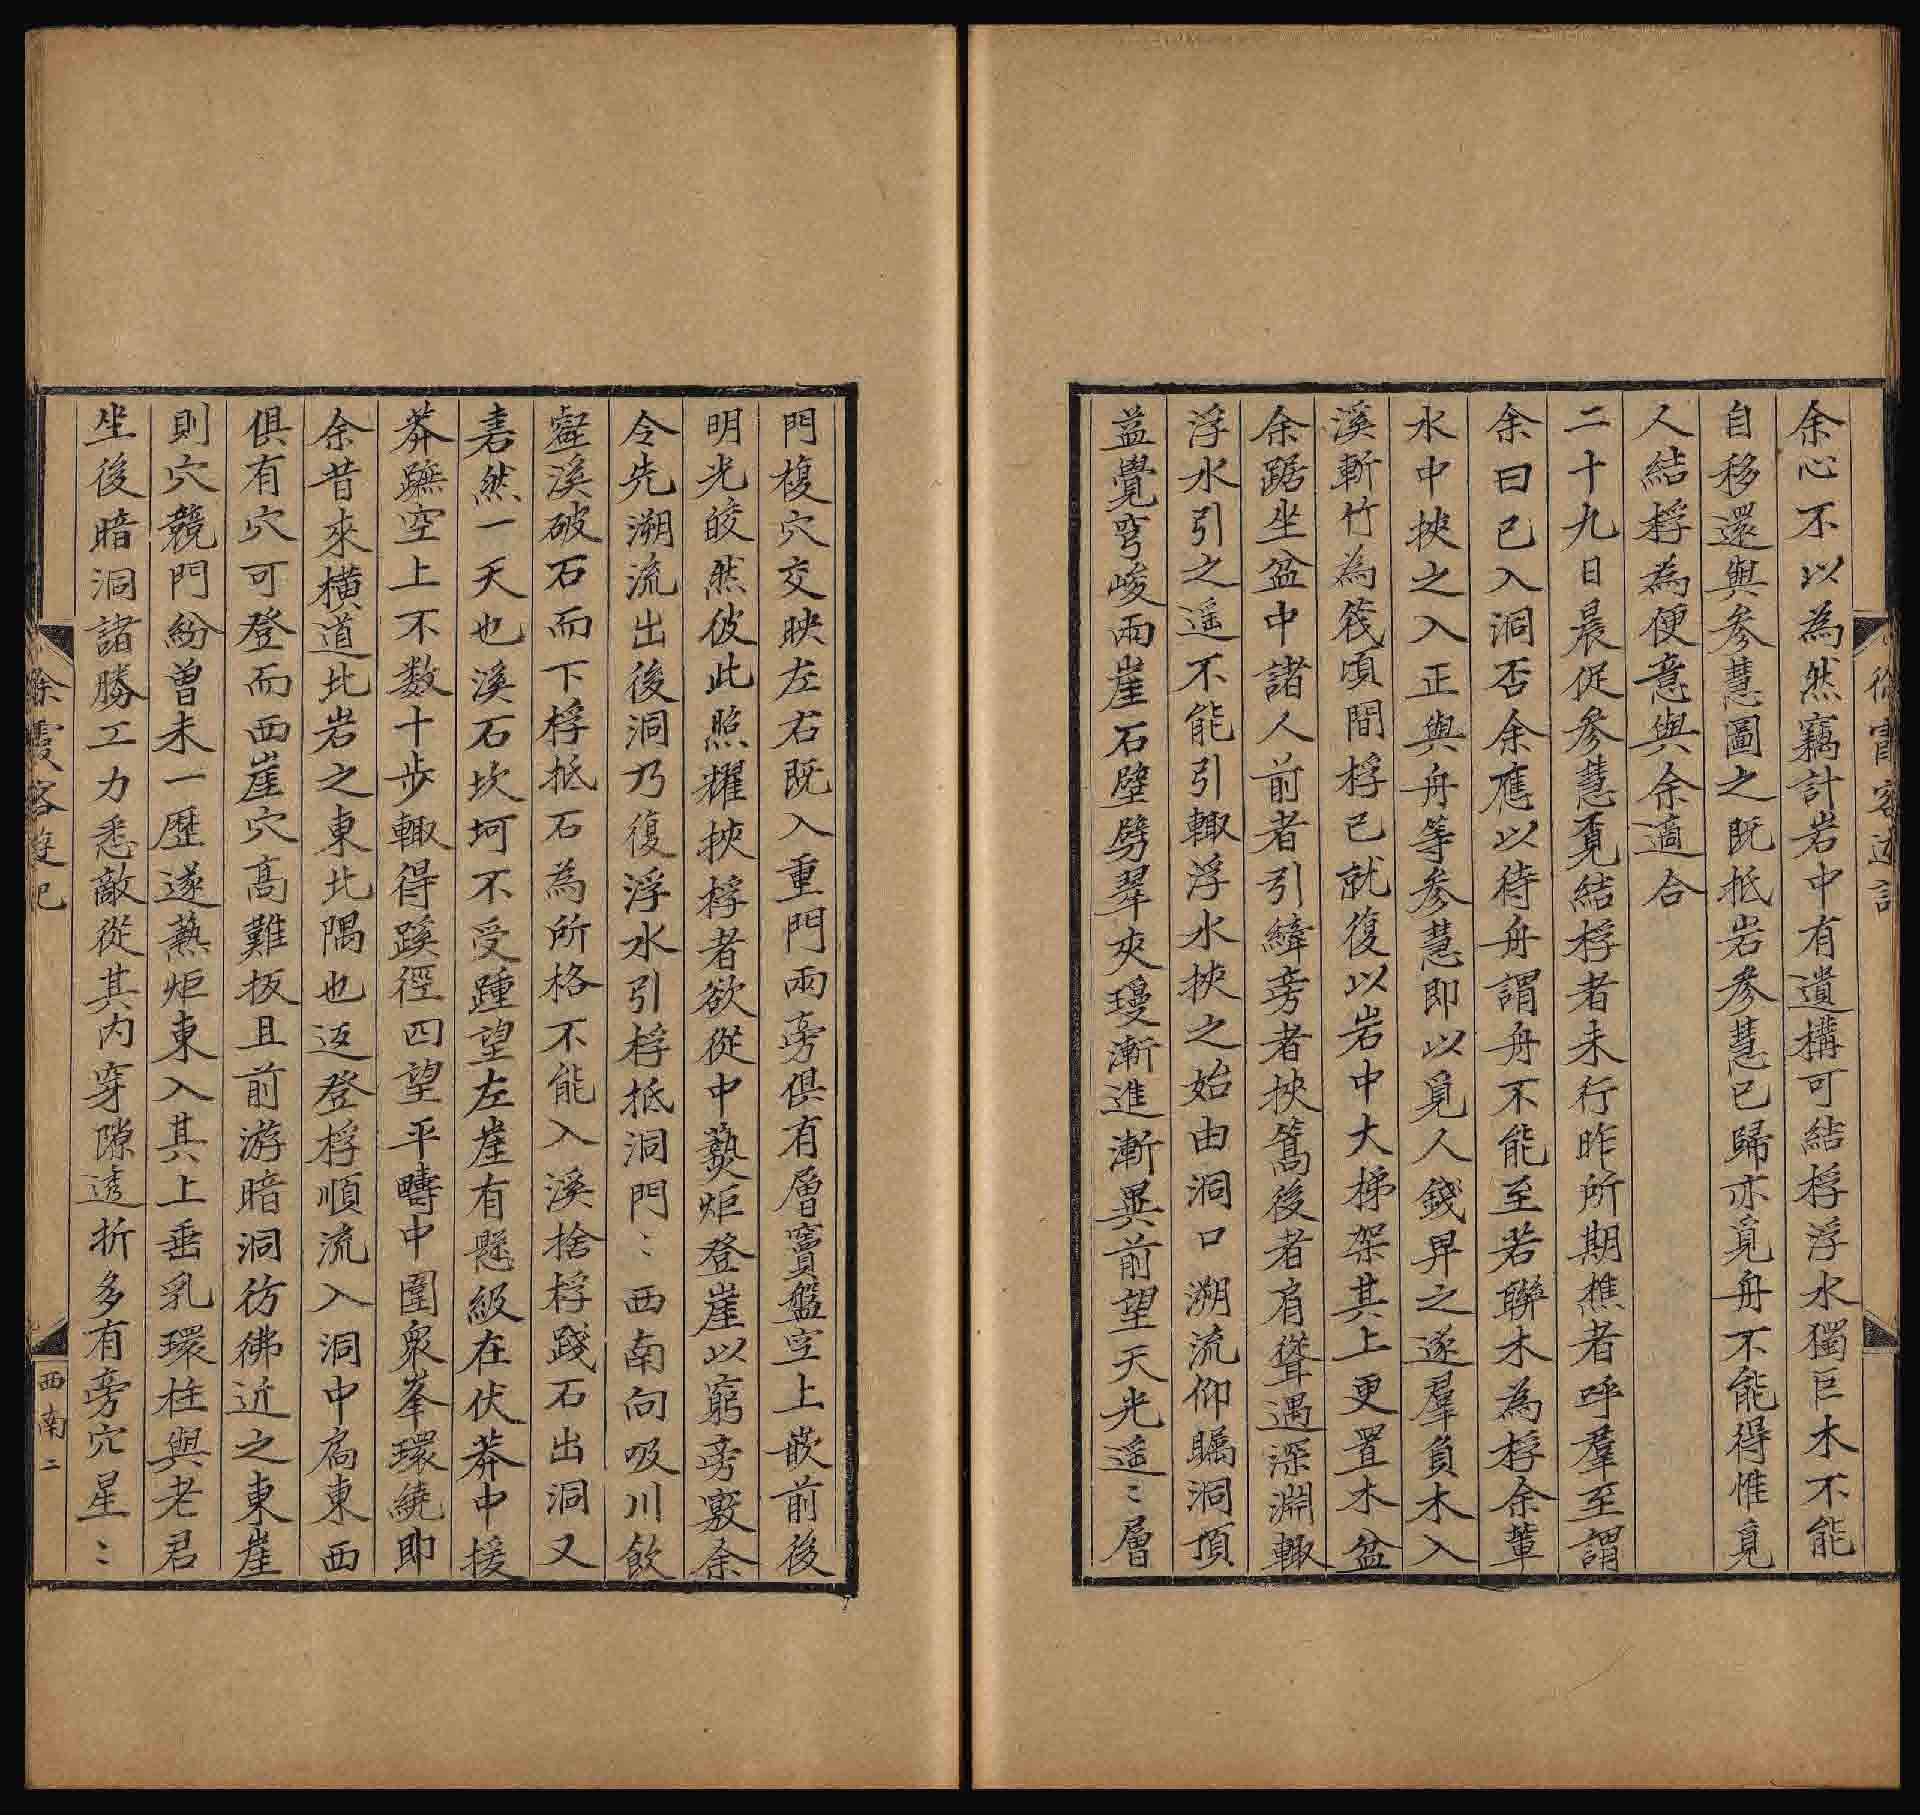 徐霞客遊記
余心不以為然竊計岩中有遺構可結桴浮水獨巨木不能
自移還與參慧圖之既抵岩參慧已歸亦覓舟不能得惟覓
人結桴為便意與余適合
二十九日晨促參慧覔結桴者未行昨所期樵者呼羣至謂
余曰已入洞否余應以待舟謂舟不能至若聯木為桴余輩
水中挾之入正與舟等參慧即以覓人錢畀之遂羣負木入
溪斬竹為筏頃間桴已就復以岩中大梯架其上更置木盆
余踞坐盆中諸人前者引緯旁者挾篙後者肩聳遇深淵輙
浮水引之遥不能引輙浮水挾之始由洞口溯流仰矚洞頂
益覺穹峻兩崖石壁劈翠夾瓊漸進漸異前望天光遥〻層
門複穴交映左右既入重門兩旁俱有層竇盤空上嵌前後
明光皎然彼此照耀挾桴者欲從中爇炬登崖以窮旁竅余
令先溯流出後洞乃復浮水引桴抵洞門〻西南向吸川飲
壑溪破石而下桴抵石為所格不能入溪捨桴踐石出洞又
砉然一天也溪石坎坷不受踵望左崖有懸級在伏莽中援
莽蹠空上不数十步輙得蹊徑四望平疇中圍衆峯環繞即
余昔來横道北岩之東北隅也返登桴順流入洞中扃東西
俱有穴可登而西崖穴高難扳且前游暗洞彷彿近之東崖
則穴競門紛曽未一歷遂爇炬東入其上垂乳環柱與老君
坐後暗洞諸勝工力悉敵從其内穿隙透折多有旁穴星〻
徐霞客遊記
西南二